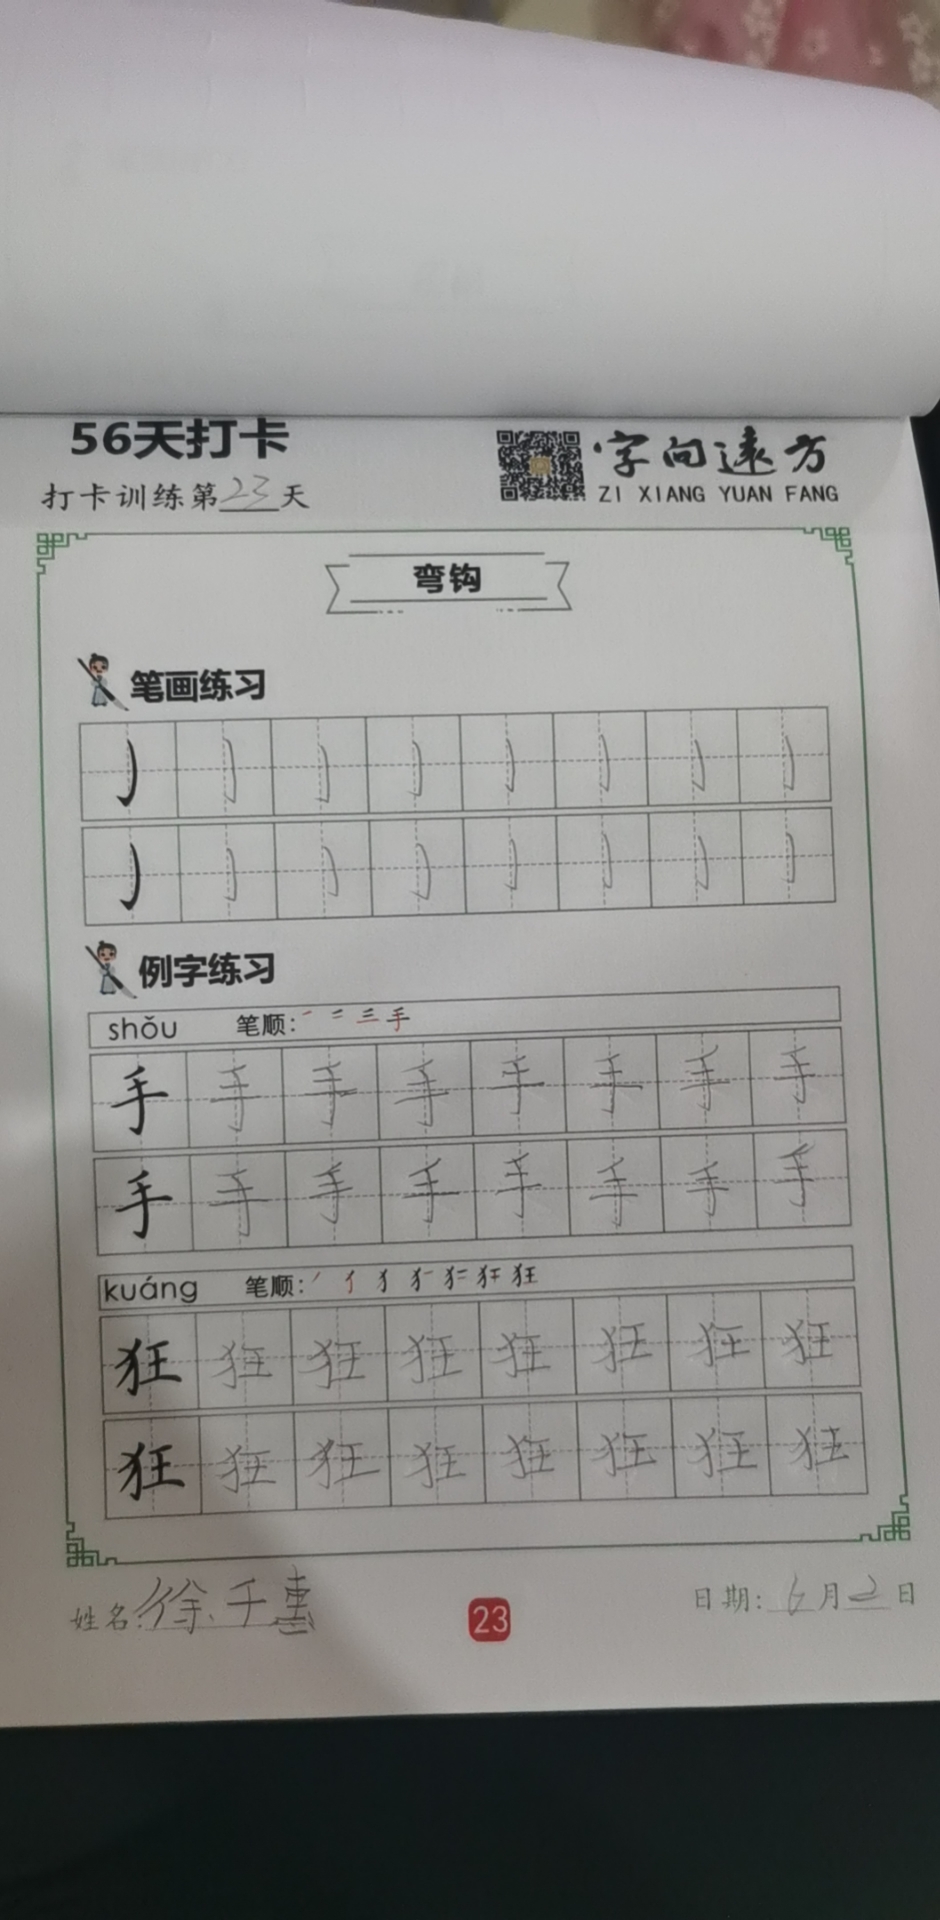 56天打卡
字向远方
打卡训练第23天
ZI XIANG YUAN FANG
弯钩
笔画练习
例字练习
shǒu 笔顺: 一 二 三 手
手 手 手 手 手 手 手 手
手 手 手 手 手 手 手 手
kuáng 笔顺:
狂 狂 狂 狂 狂 狂 狂 狂
狂 狂 狂 狂 狂 狂 狂 狂
姓名:徐千惠
23
日期:6月2日